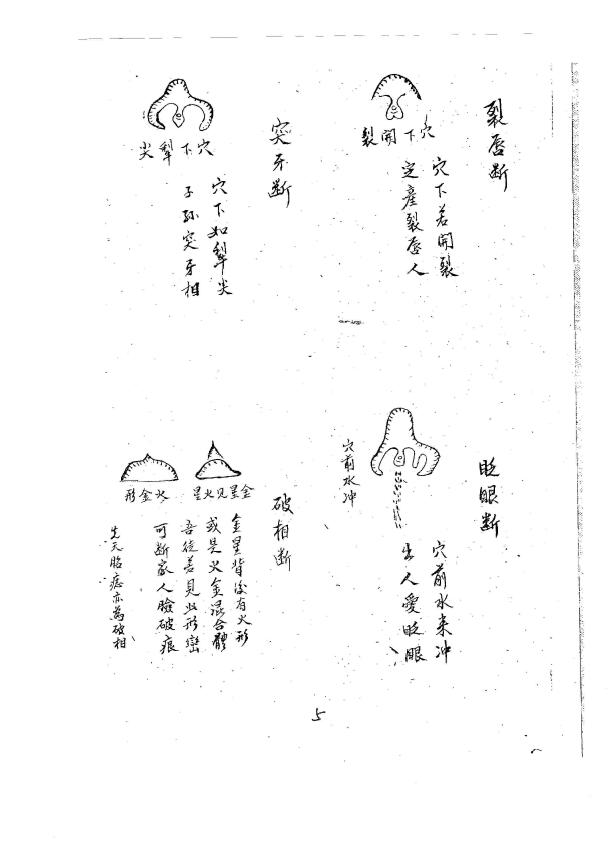 裂唇断
穴下開裂
穴下若開裂
定產裂唇人
突牙断
穴下犁尖
穴下如犁尖
子孫突牙相
眨眼断
穴前水冲
穴前水来冲
出人愛眨眼
破相断
金星見火星
火金形
金星背後有火形
或是火金混合體
吾徒若見此形巒
可断家人臉破痕
先天胎痣亦為破相
5